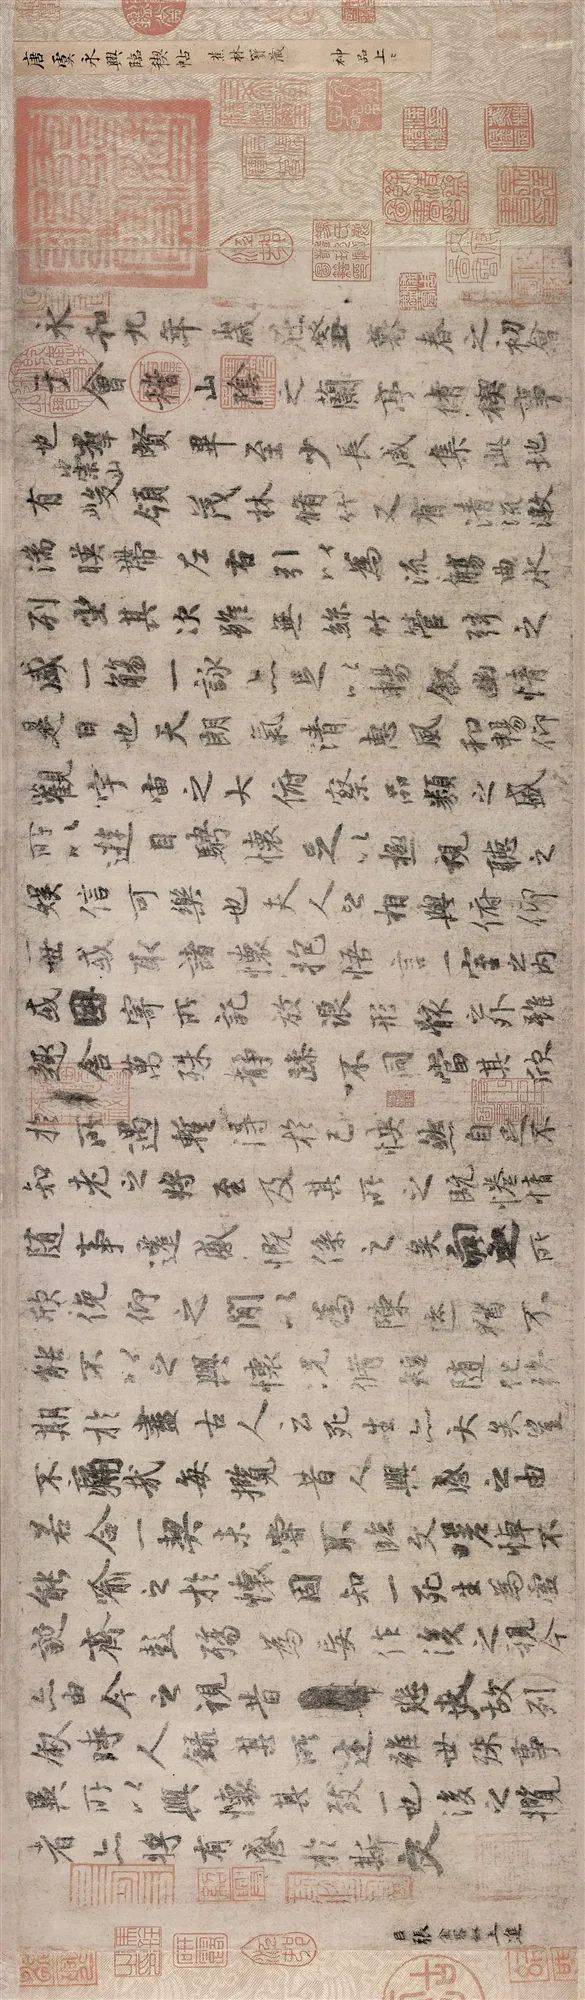 唐虞永興臨禊帖 蕉林寶藏 神品上上
永和九年歲在癸丑暮春之初會
于會稽山陰之蘭亭脩禊事
也羣賢畢至少長咸集此地
有崇山峻領茂林脩竹又有清流激
湍暎帶左右引以為流觴曲水
列坐其次雖無絲竹管弦之
盛一觴一詠亦足以暢敘幽情
是日也天朗氣清惠風和暢仰
觀宇宙之大俯察品類之盛
所以遊目騁懷足以極視聽之
娛信可樂也夫人之相與俯仰
一世或取諸懷抱悟言一室之內
或因寄所託放浪形骸之外雖
趣舍萬殊靜躁不同當其欣
於所遇暫得於己怏然自足不
知老之將至及其所之既惓情
隨事遷感慨係之矣向之所
欣俛仰之閒以為陳迹猶不
能不以之興懷況脩短隨化終
期於盡古人云死生亦大矣豈
不痛哉每攬昔人興感之由
若合一契未嘗不臨文嗟悼不
能喻之於懷固知一死生為虛
誕齊彭殤為妄作後之視今
亦由今之視昔悲夫故列
敘時人錄其所述雖世殊事
異所以興懷其致一也後之攬
者亦將有感於斯文
臣張金界奴上進